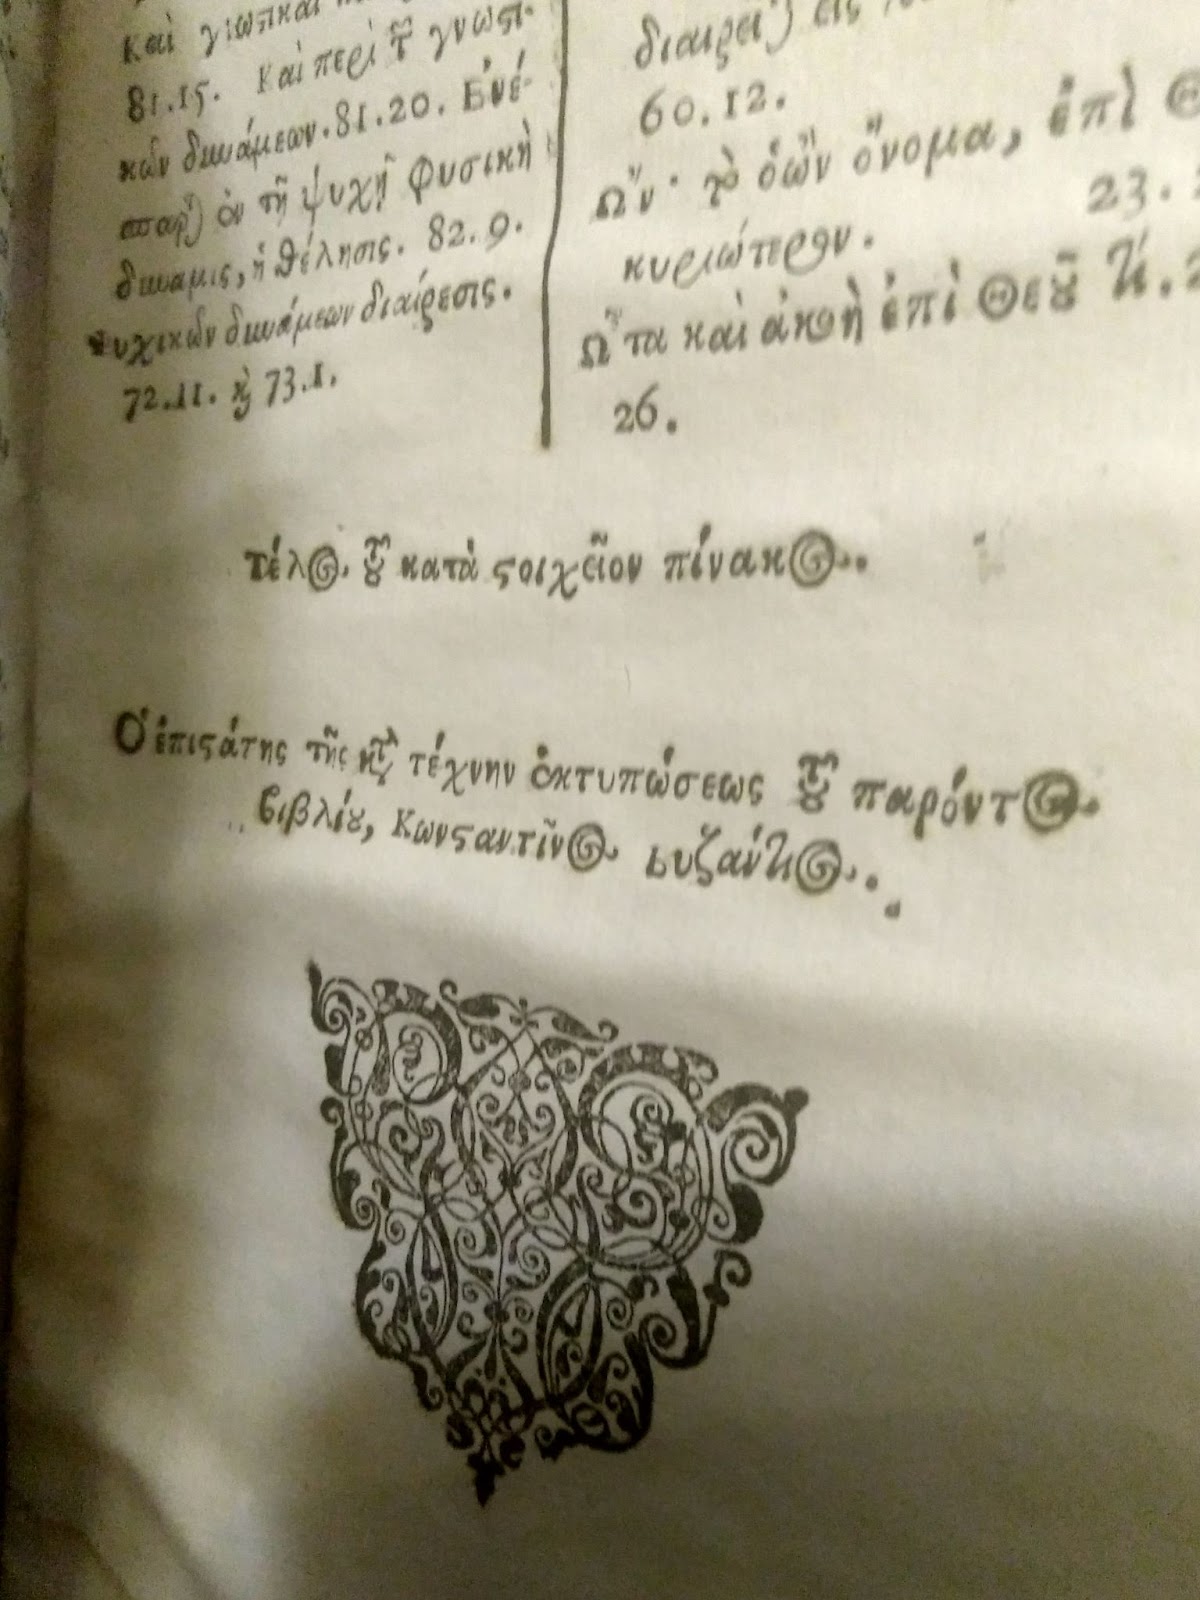 καὶ
81.15. Καὶ περὶ τ̃ γνωστι-
κῶν δυνάμεων. 81.20. Ἐνέ-
σπαρ) ἐν τῇ ψυχῇ φυσικὴ
δύναμις, ἡ θέλησις. 82.9.
Ψυχικῶν δυνάμεων διαίρεσις.
72.11. ϗ 73.1.
διαιρεῖ) εἰς
60.12.
Ὤν· τὸ ὁ ὢν ὄνομα, ἐπὶ Θ
κυριώτερον. 23.
Ὦτα καὶ ἀκοὴ ἐπὶ Θεοῦ τί.
26.
Τέλος τοῦ κατὰ ϛοιχεῖον πίνακος.
Ὁ ἐπιϛάτης τῆς κτ̀ τέχνην ἐκτυπώσεως τοῦ παρόντος
βιβλίου, Κωνϛαντῖνος Βυζάντιος.